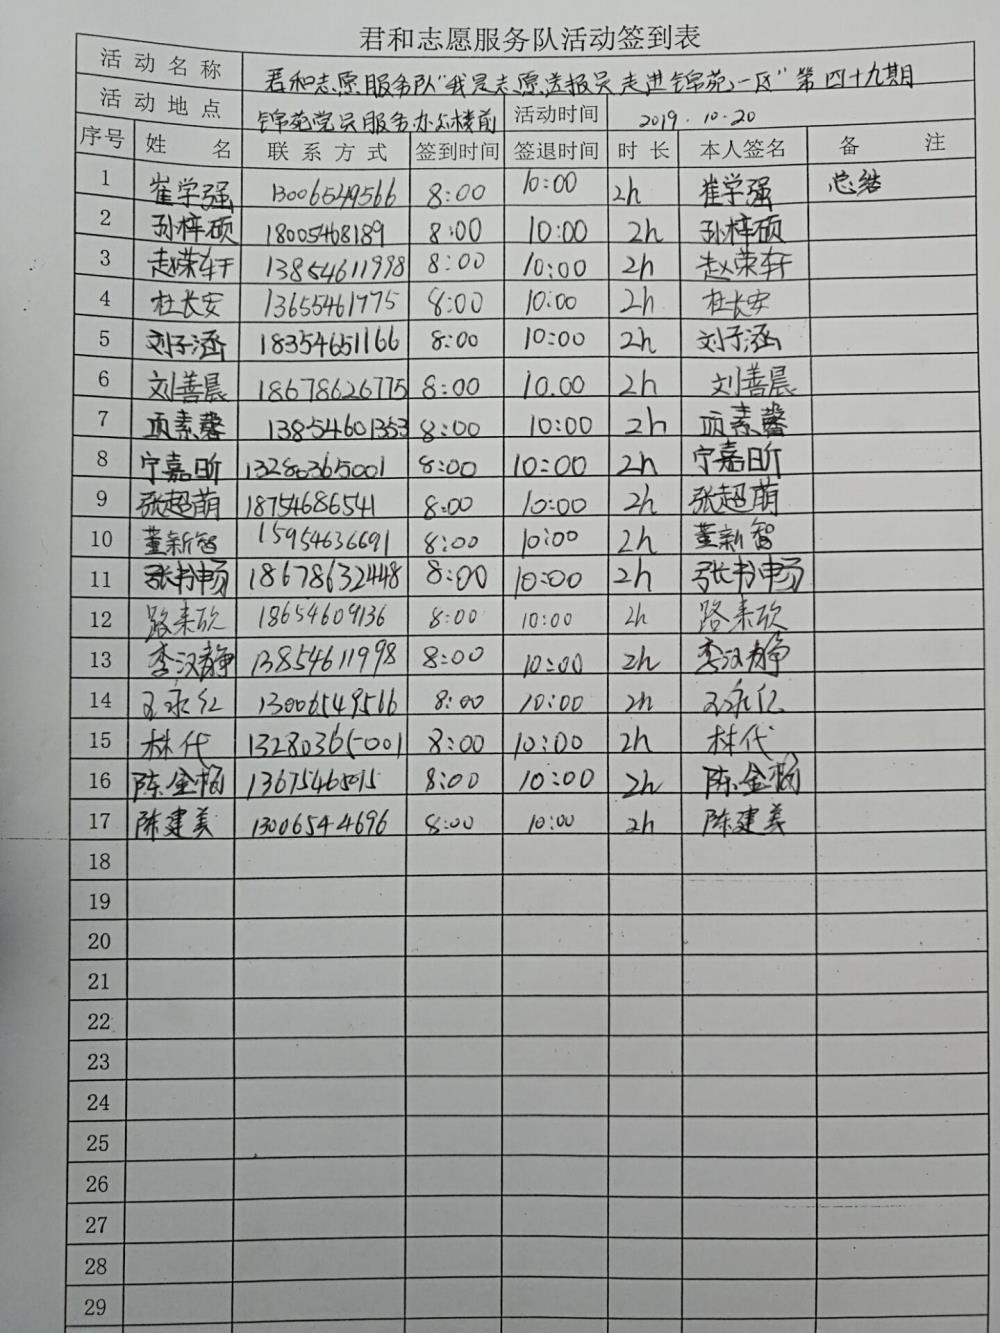 君和志愿服务队活动签到表
活动名称 君和志愿服务队"我是志愿送报员走进锦苑一区"第四十九期
活动地点 锦苑党员服务办公楼前 活动时间 2019.10.20
序号 姓名 联系方式 签到时间 签退时间 时长 本人签名 备注
1 崔学强 13006549566 8:00 10:00 2h 崔学强 总结
2 孙梓硕 18005468189 8:00 10:00 2h 孙梓硕
3 赵荣轩 13854611998 8:00 10:00 2h 赵荣轩
4 杜长安 13655461775 8:00 10:00 2h 杜长安
5 刘子涵 18354651166 8:00 10:00 2h 刘子涵
6 刘善晨 18678626775 8:00 10.00 2h 刘善晨
7 项素馨 13854601353 8:00 10:00 2h 项素馨
8 宁嘉昕 13280365001 8:00 10:00 2h 宁嘉昕
9 张超萌 18754686541 8:00 10:00 2h 张超萌
10 董新智 15954636691 8:00 10:00 2h 董新智
11 张书畅 18678632448 8:00 10:00 2h 张书畅
12 路来欣 18654609136 8:00 10:00 2h 路来欣
13 李汉静 13854611998 8:00 10:00 2h 李汉静
14 王永红 13006549566 8:00 10:00 2h 王永红
15 林代 13280365001 8:00 10:00 2h 林代
16 陈金杨 8:00 10:00 2h 陈金杨
17 陈建美 13006544696 8:00 10:00 2h 陈建美
18
19
20
21
22
23
24
25
26
27
28
29